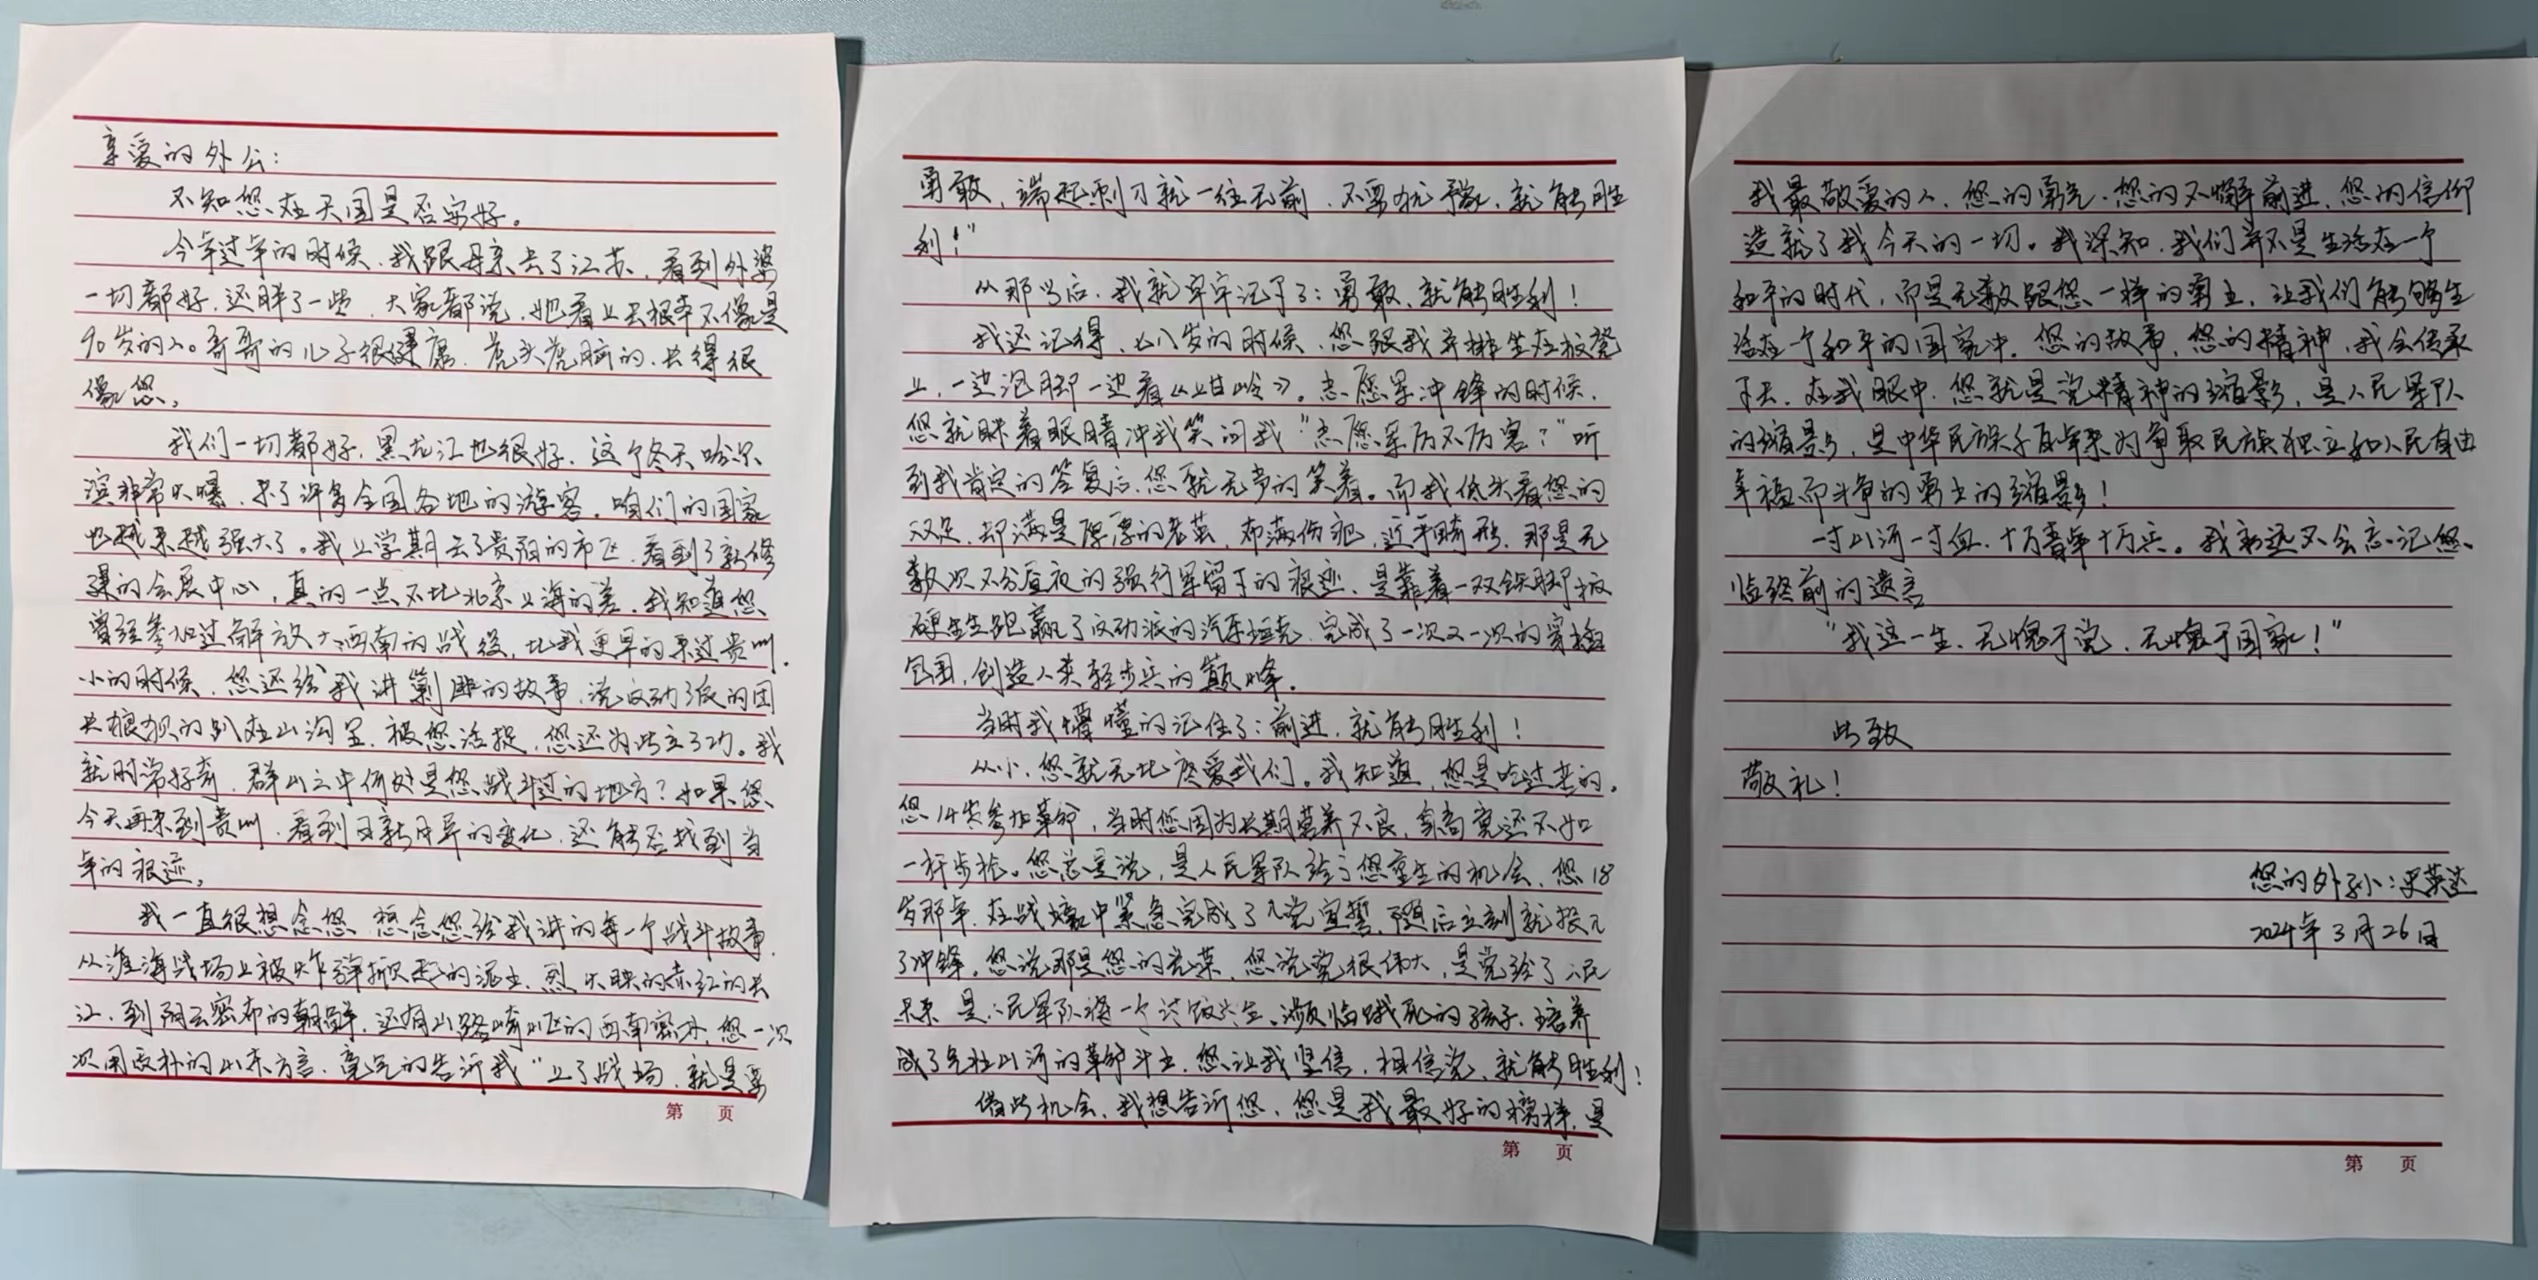 亲爱的外公：
不知您在天国是否安好。
今年过年的时候，我跟母亲去了江苏，看到外婆
一切都好，还胖了一些，大家都说，她看上去根本不像是
90岁的人。哥哥的儿子很健康，虎头虎脑的，长得很
像您。
我们一切都好，黑龙江也很好，这个冬天哈尔
滨非常火爆，来了许多全国各地的游客。咱们的国家
也越来越强大了。我上学期去了贵阳的市区，看到了新修
建的会展中心，真的一点不比北京上海的差。我知道您
曾经参加过解放大西南的战役，比我更早的来过贵州。
小的时候，您还给我讲剿匪的故事，说反动派的团
长狼狈的趴在山沟里，被您活捉，您还为此立了功。我
就时常好奇，群山之中何处是您战斗过的地方？如果您
今天再来到贵州，看到日新月异的变化，还能否找到当
年的痕迹。
我一直很想念您，想念您给我讲的每一个战斗故事，
从淮海战场上被炸弹掀起的泥土，烈火映的赤红的长
江，到阴云密布的朝鲜，还有山路崎岖的西南密林，您一次
次用质朴的山东方言，豪气的告诉我“上了战场，就是要
第 页
勇敢，端起刺刀就一往无前，不要犹豫，就能胜
利！”
从那以后，我就牢牢记下了：勇敢，就能胜利！
我还记得，七八岁的时候，您跟我并排坐在板凳
上，一边泡脚一边看《上甘岭》。志愿军冲锋的时候，
您就眯着眼睛冲我笑问我“志愿军厉不厉害？”听
到我肯定的答复后，您就无声的笑着。而我低头看您的
双足，却满是厚厚的老茧，布满伤疤，近乎畸形，那是无
数次不分昼夜的强行军留下的痕迹，是靠着一双铁脚板
硬生生跑赢了反动派的汽车坦克，完成了一次又一次的穿插
包围，创造人类轻步兵的巅峰。
当时我懵懂的记住了：前进，就能胜利！
从小，您就无比疼爱我们。我知道，您是吃过苦的。
您14岁参加革命，当时您因为长期营养不良，身高竟还不如
一杆步枪。您总是说，是人民军队给了您重生的机会，您18
岁那年，在战壕中紧急完成了入党宣誓，随后立刻就投入
了冲锋，您说那是您的光荣，您说党很伟大，是党给了人民
未来，是人民军队将一个讨饭为生、濒临饿死的孩子，培养
成了气壮山河的革命斗士，您让我坚信，相信党，就能胜利！
借此机会，我想告诉您，您是我最好的榜样，是
第 页
我最敬爱的人，您的勇气，您的不懈前进，您的信仰
造就了我今天的一切。我深知，我们并不是生活在一个
和平的时代，而是无数跟您一样的勇士，让我们能够生
活在一个和平的国家中。您的故事，您的精神，我会传承
下去，在我眼中，您就是党精神的缩影，是人民军队
的缩影，是中华民族千百年来为争取民族独立和人民自由
幸福而斗争的勇士的缩影！
一寸山河一寸血，十万青年十万兵。我永远不会忘记您
临终前的遗言
“我这一生，无愧于党，无愧于国家！”
此致
敬礼！
您的外孙：史英达
2024年3月26日
第 页